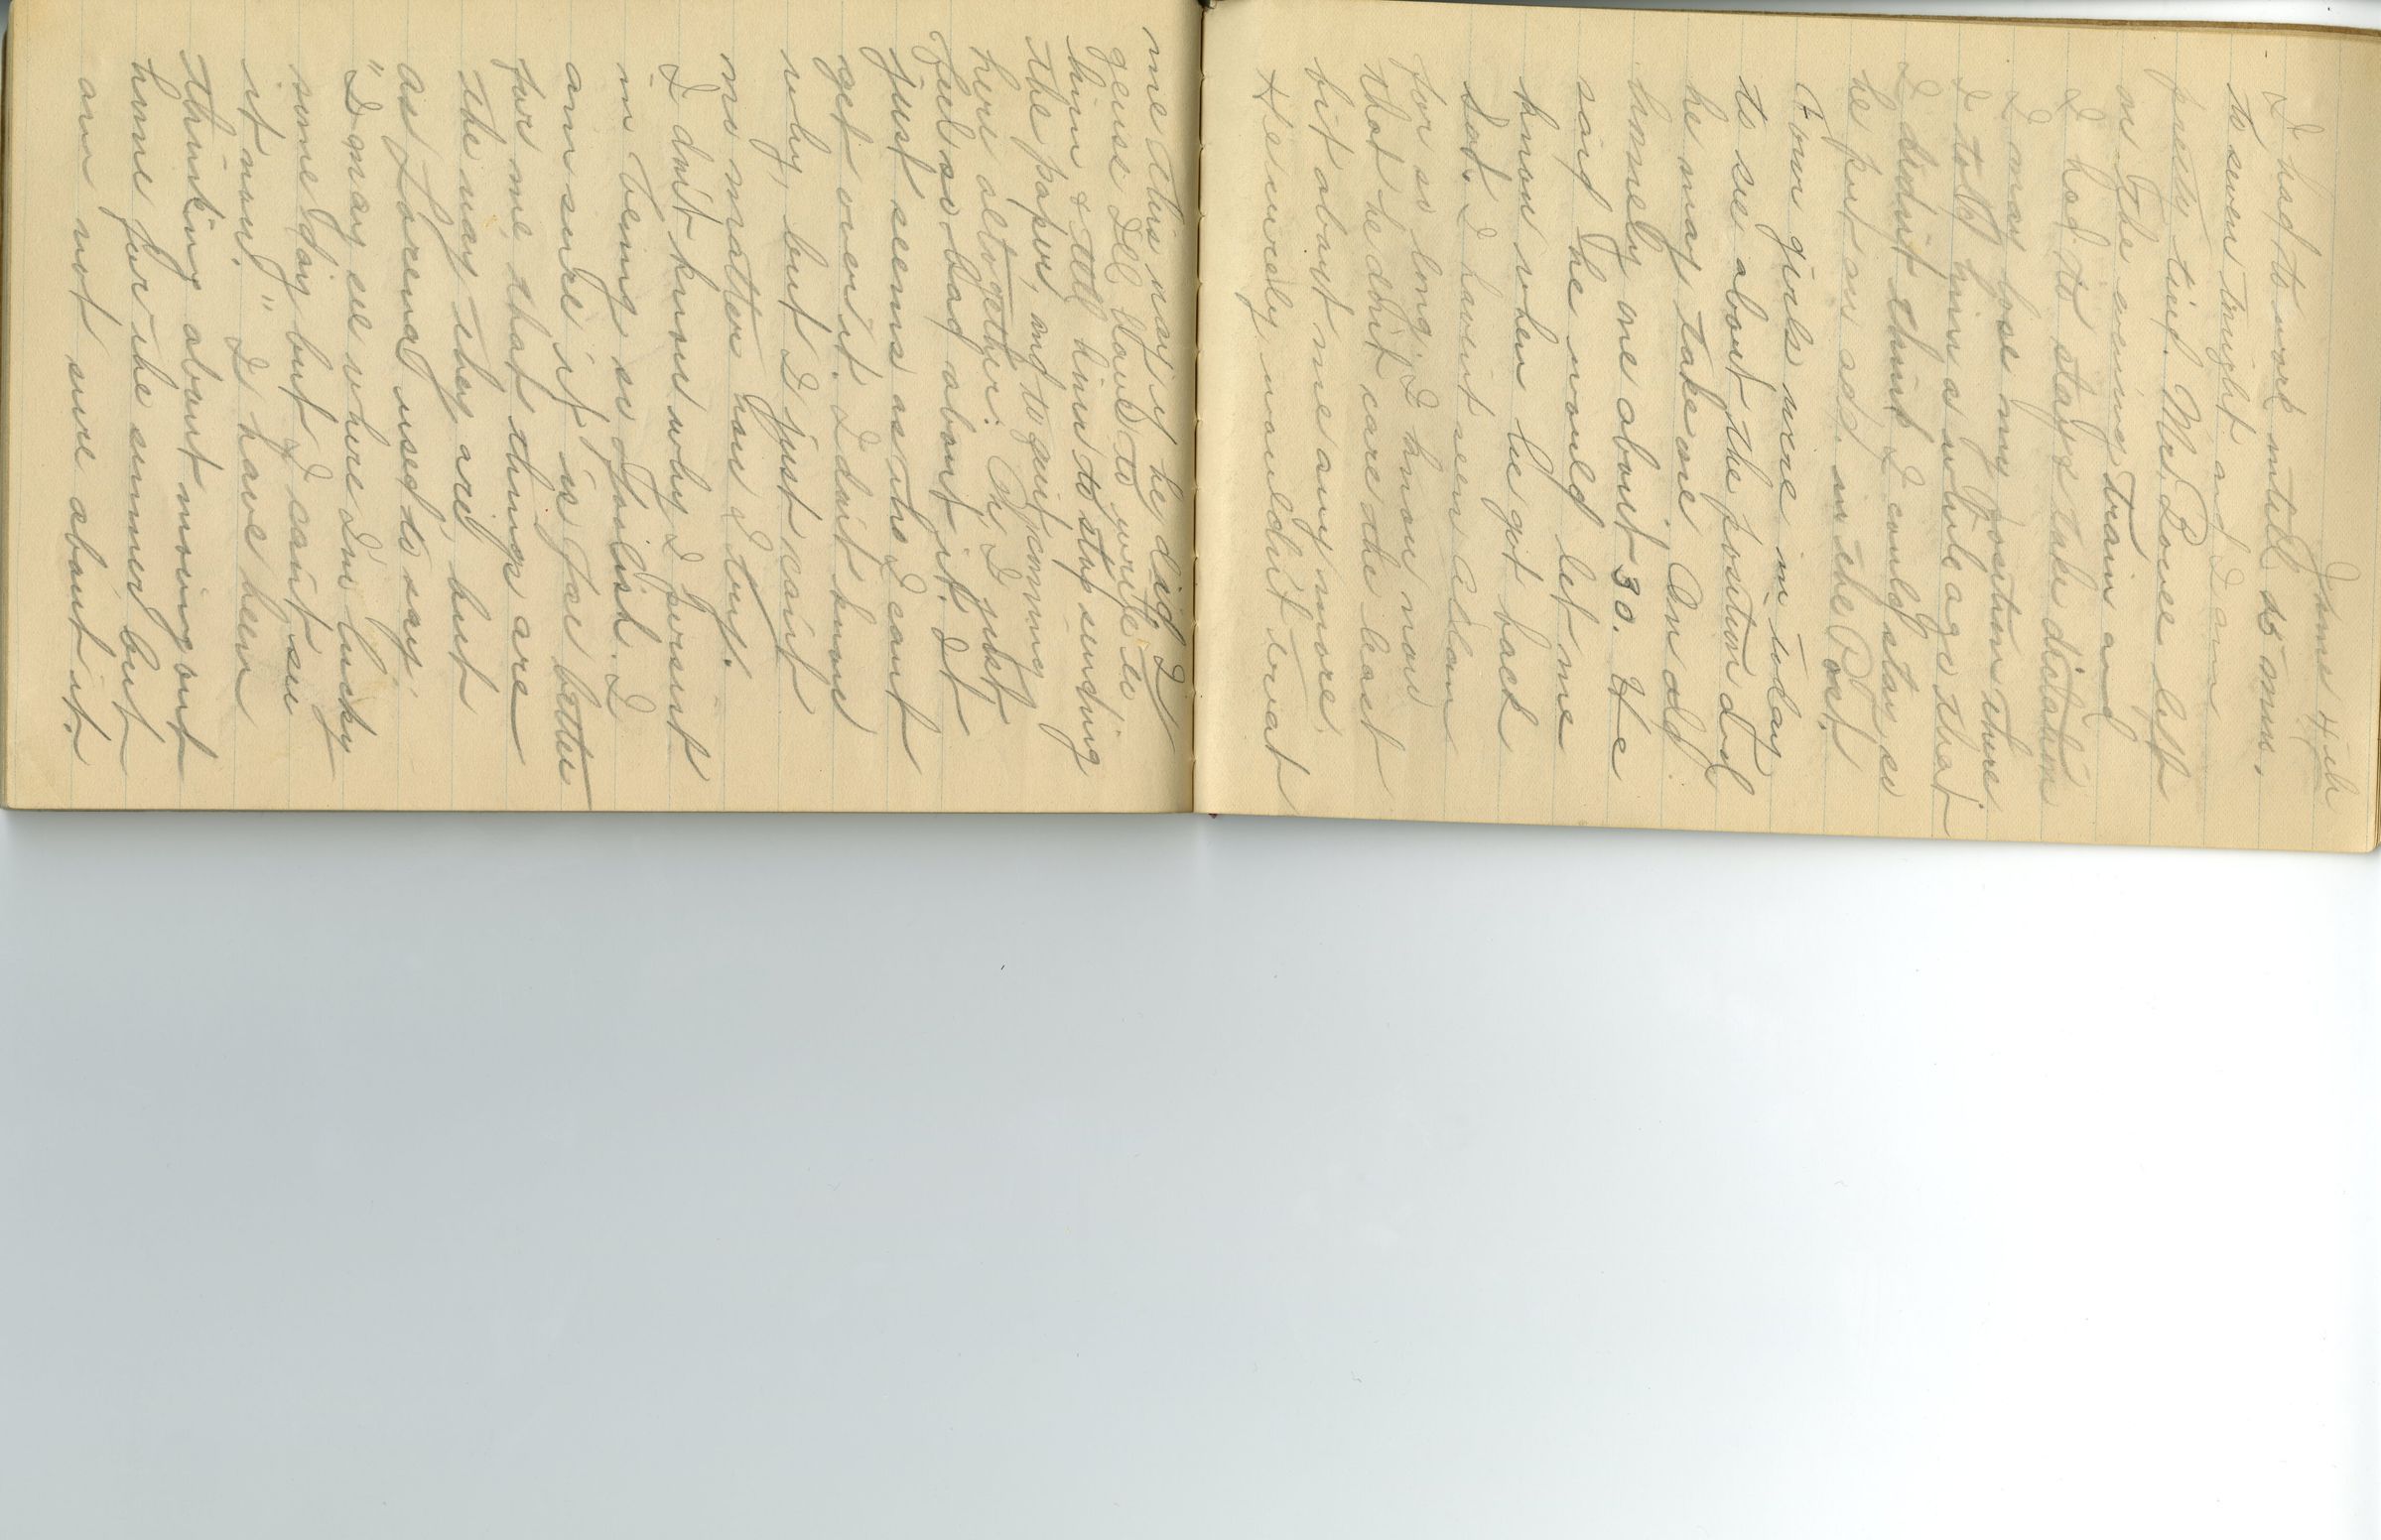 June 4th
I had to work untill 25 min.
to seven tonight and I am
pretty tired. Mr. Bower left
on the evening train and
I had to stay & take dictation
I may lose my position there
I told him a while ago that
I didn't think I could stay so
he put an add. in the Post.
Four girls were in today
to see about the position and
he may take one. An old
homely one about 30. He
said he would let me
know when he got back
Sat. I havent seen Allan
for so long. I know now
that he don't care the least
bit about me any more.
He surely wouldn't treat
me this way if he did. I
guess Ill have to write to
him & tell him to stop sending
the paper, and to quit comming
here altogether. Oh, I just
feel so bad about it. It
just seems as tho I cant
get over it. I dont know
why, but I just cant
no matter how I try.
I dont know why I persist
in being so foolish. I
am sure it is far better
for me that things are
the way they are, but
as Lorena used to say,
"I may see where I'm lucky
some day but I can't see
it now." I have been
thinking about moving out
home for the summer but
am not sure about it.